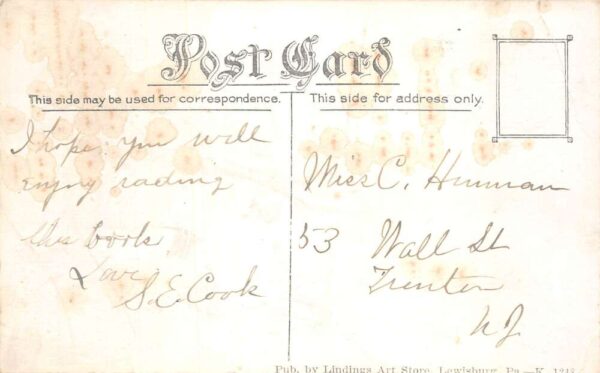 Post Card
This side may be used for correspondence.
This side for address only.
I hope you will
enjoy reading
this book
Love
S.E. Cook
Miss C. Hinman
53 Wall St
Trenton
NJ
Pub. by Lindings Art Store, Lewisburg, Pa.—K